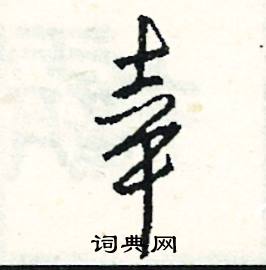 幸
词典网